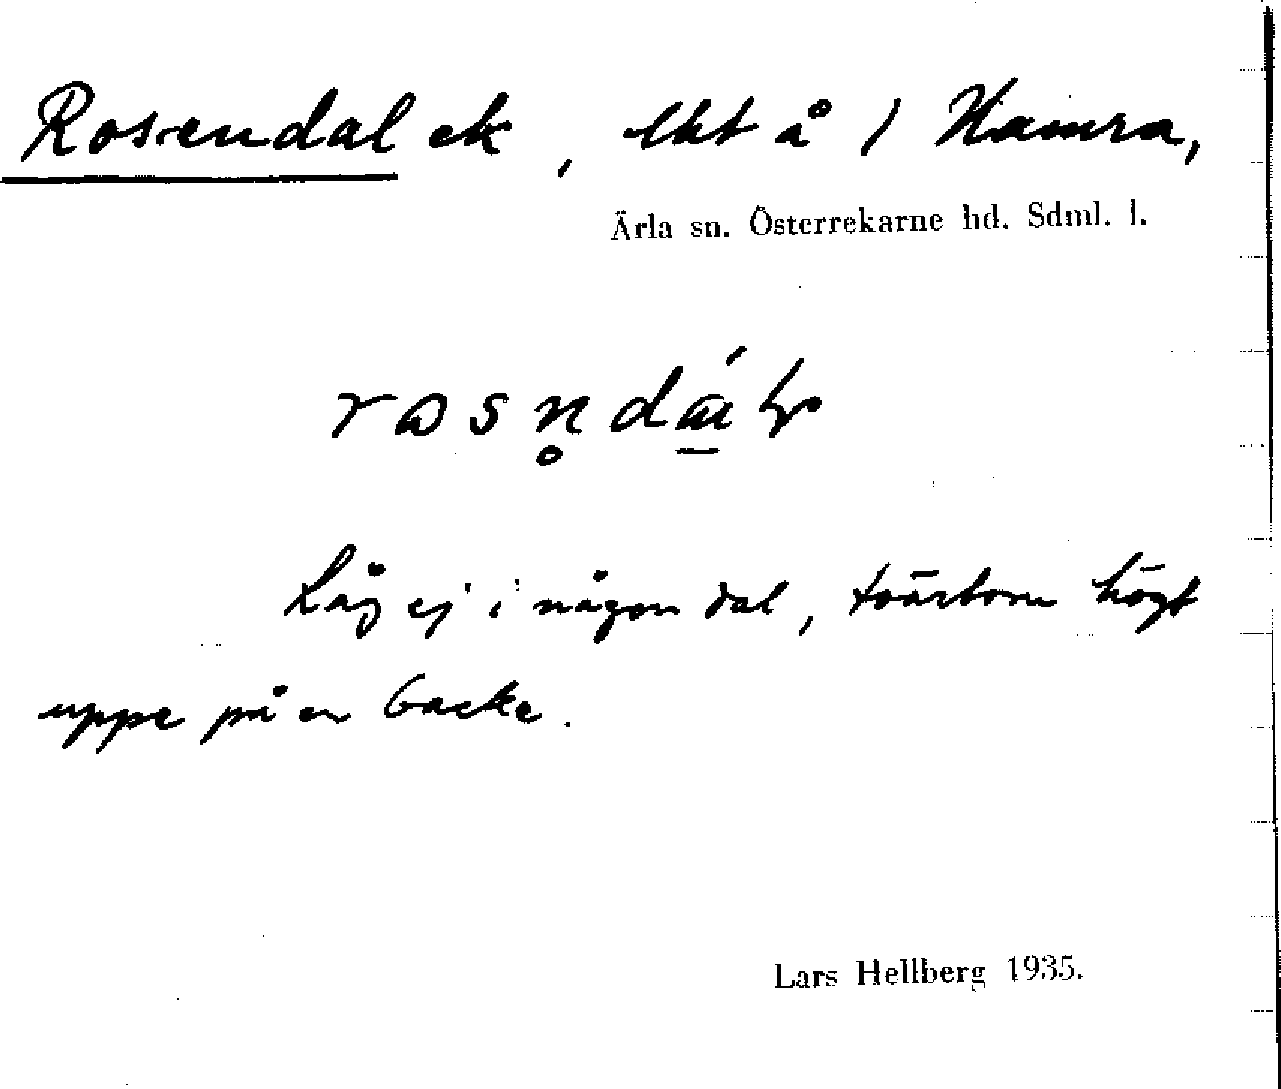 Rosendal ek, lht å 1 Hamra,
Ärla sn. Österrekarne hd. Sdml. l.
Låg ej i någon dal, tvärtom högt
uppe på en backe.
Lars Hellberg 1935.